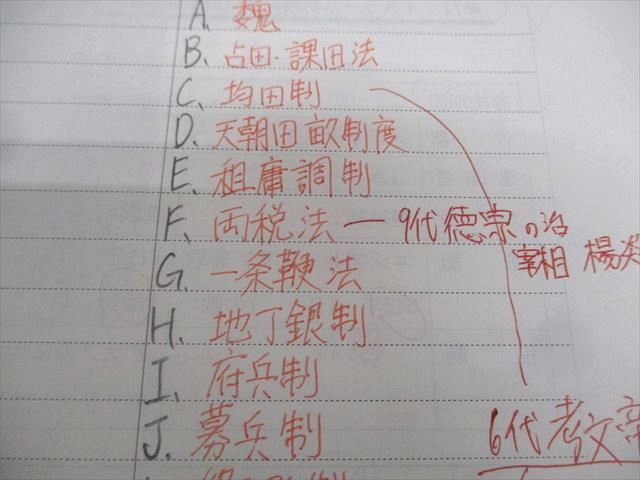 A. 魏
B. 占田·課田法
C. 均田制
D. 天朝田畝制度
E. 租庸調制
F. 両税法 — 9代徳宗の治
宰相 楊炎
G. 一条鞭法
H. 地丁銀制
I. 府兵制
J. 募兵制
6代孝文帝